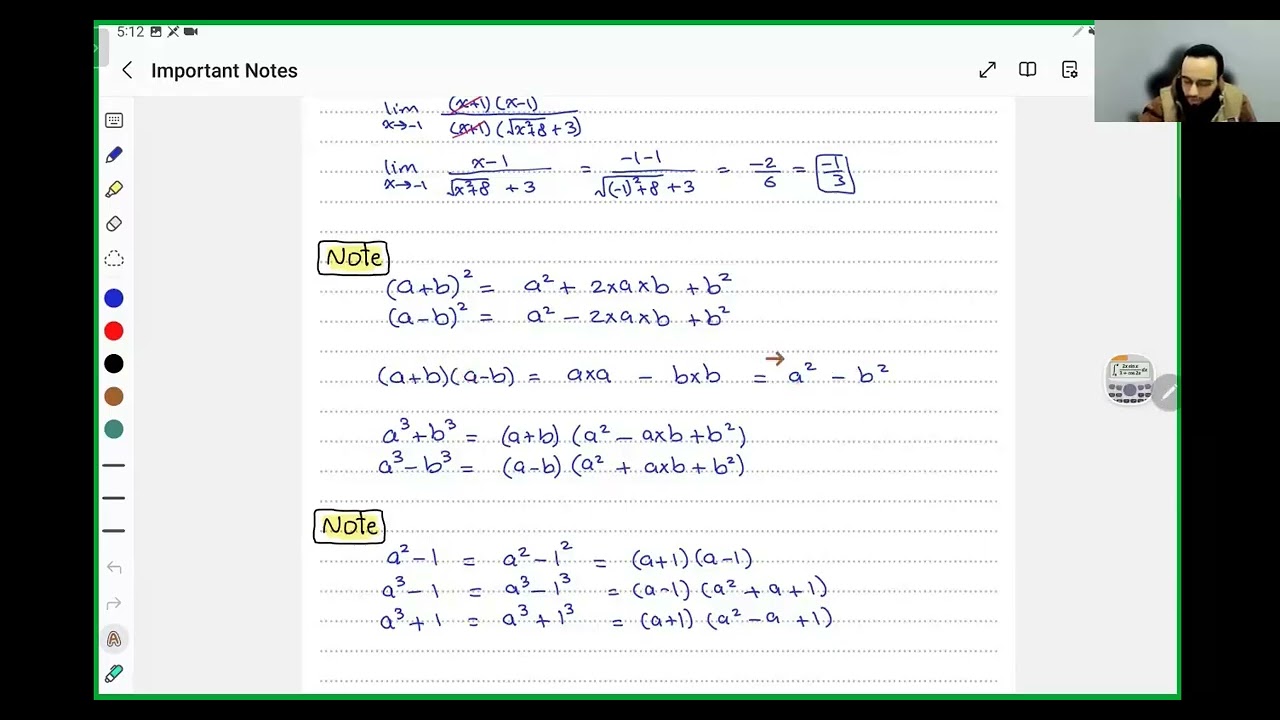 5:12
Important Notes
lim x→-1 (x+1)(x-1) / (x+1)(√x²+8 + 3)
lim x→-1 x-1 / √x²+8 + 3 = -1-1 / √(-1)²+8 + 3 = -2/6 = -1/3
Note
(a+b)² = a² + 2×a×b + b²
(a-b)² = a² - 2×a×b + b²
(a+b)(a-b) = a×a - b×b = → a² - b²
a³+b³ = (a+b) (a² - a×b + b²)
a³-b³ = (a-b) (a² + a×b + b²)
Note
a²-1 = a²-1² = (a+1) (a-1)
a³-1 = a³-1³ = (a-1) (a² + a + 1)
a³+1 = a³+1³ = (a+1) (a² - a + 1)